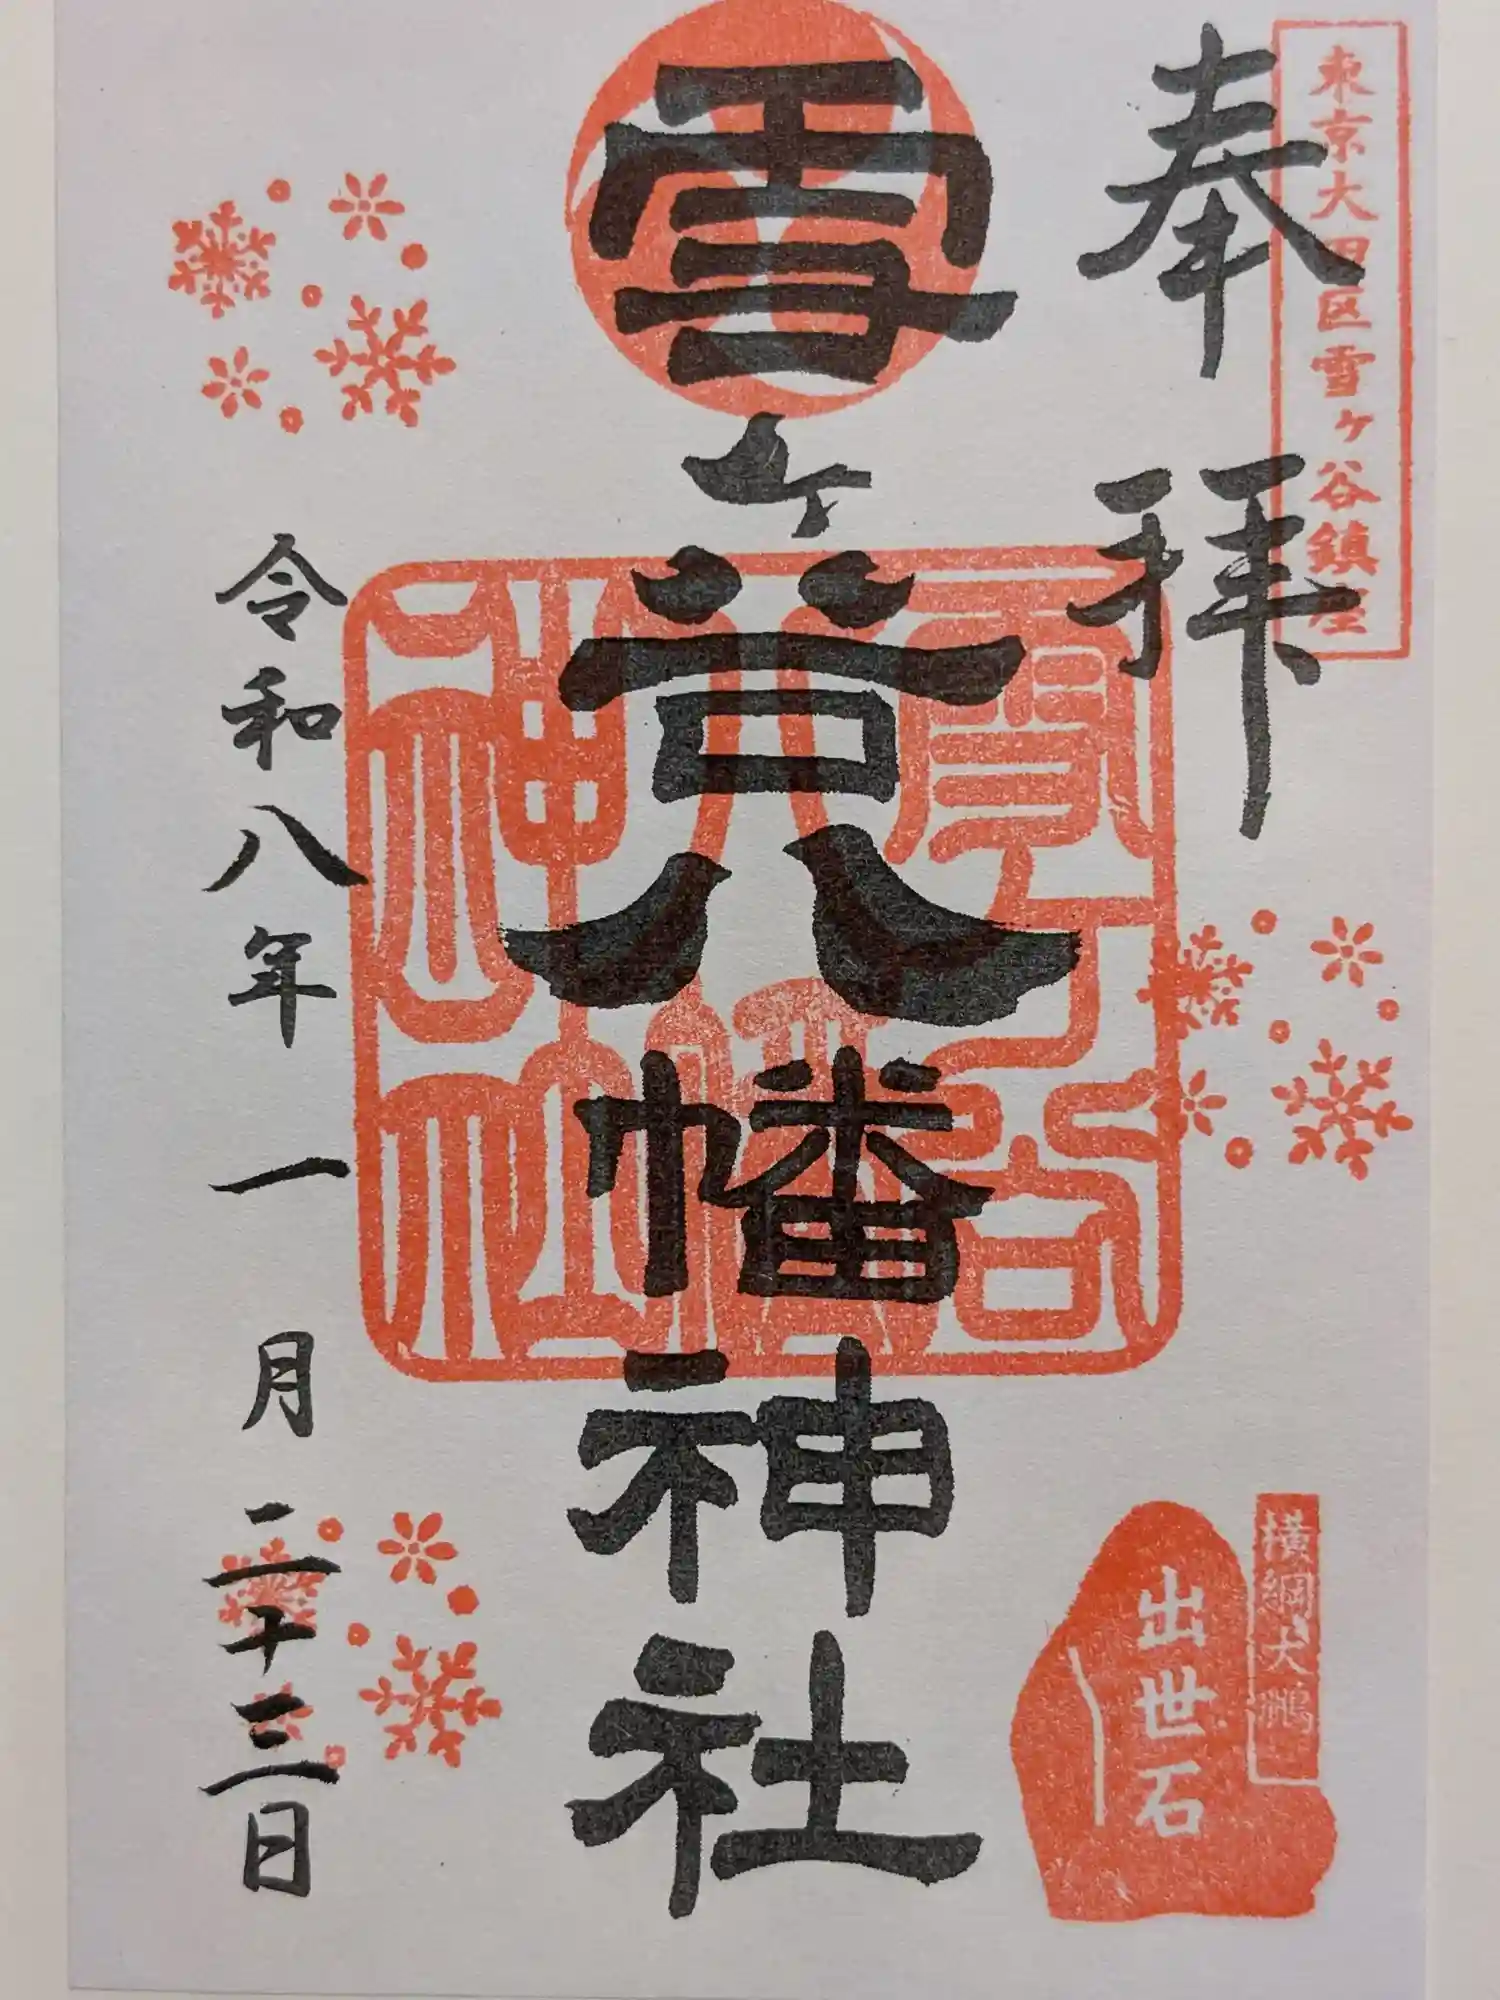 東京大田区雪ヶ谷鎮座
奉拝
横綱大鵬
出世石
雪ヶ谷八幡神社
雪ヶ谷
八幡
神社
令和八年一月二十三日